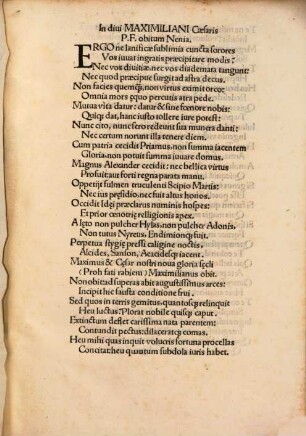 In diui MAXIMILIANI Cæsaris
P.F. obitum Nenia.
ERGO ne lanificæ sublimia cuncta sorores
Vos iuuat ingratis præcipitare modis:
Nec vos diuitiæ: nec vos diademata tangunt:
Nec quod præcipue surgit ad astra decus.
Non facies quemq̃, non virtus eximit orco:
Omnia mors quo percutis atra pede.
Mutua vita datur: datur & sine fœnore nobis:
Quiq; dat, hanc iusto tollere iure potest:
Nunc cito, nunc sero redeunt sua munera danti:
Nec certum norunt illa tenere diem.
Cum patria cecidit Priamus: non summa iacentem
Gloria: non potuit summa iuuare domus.
Magnus Alexander cecidit: nec bellica virtus
Profuit aut forti regna parata manu.
Oppetijt fulmen truculenti Scipio Martis:
Nec ius pręsidio: nec fuit altus honos.
Occidit Idęi pręclarus numinis hospes:
Et prior cęnotrię religionis apex.
A lęto non pulcher Hylas: non pulcher Adonis,
Non tutus Nyreus, Endimionq; fuit.
Perpetua stygię pressi caligine noctis,
Alcides, Santon, Aeacidesq; iacent.
Maximus & Cęsar nostri noua gloria sęcli
(Proh fati rabiem) Maximilianus obit.
Non obit: ad superas abit augustissimus arces:
Incipit hic fausta conditione frui.
Sed quos in terris gemitus: quantosq; relinquit
Heu luctus: Plorat nobile quisq; caput.
Extinctum deflet carissima nata parentem:
Contundit pectus: dilaceratq; comas.
Heu mihi quas inquit volucris fortuna procellas
Concitat: heu quantum subdola iuris habet.